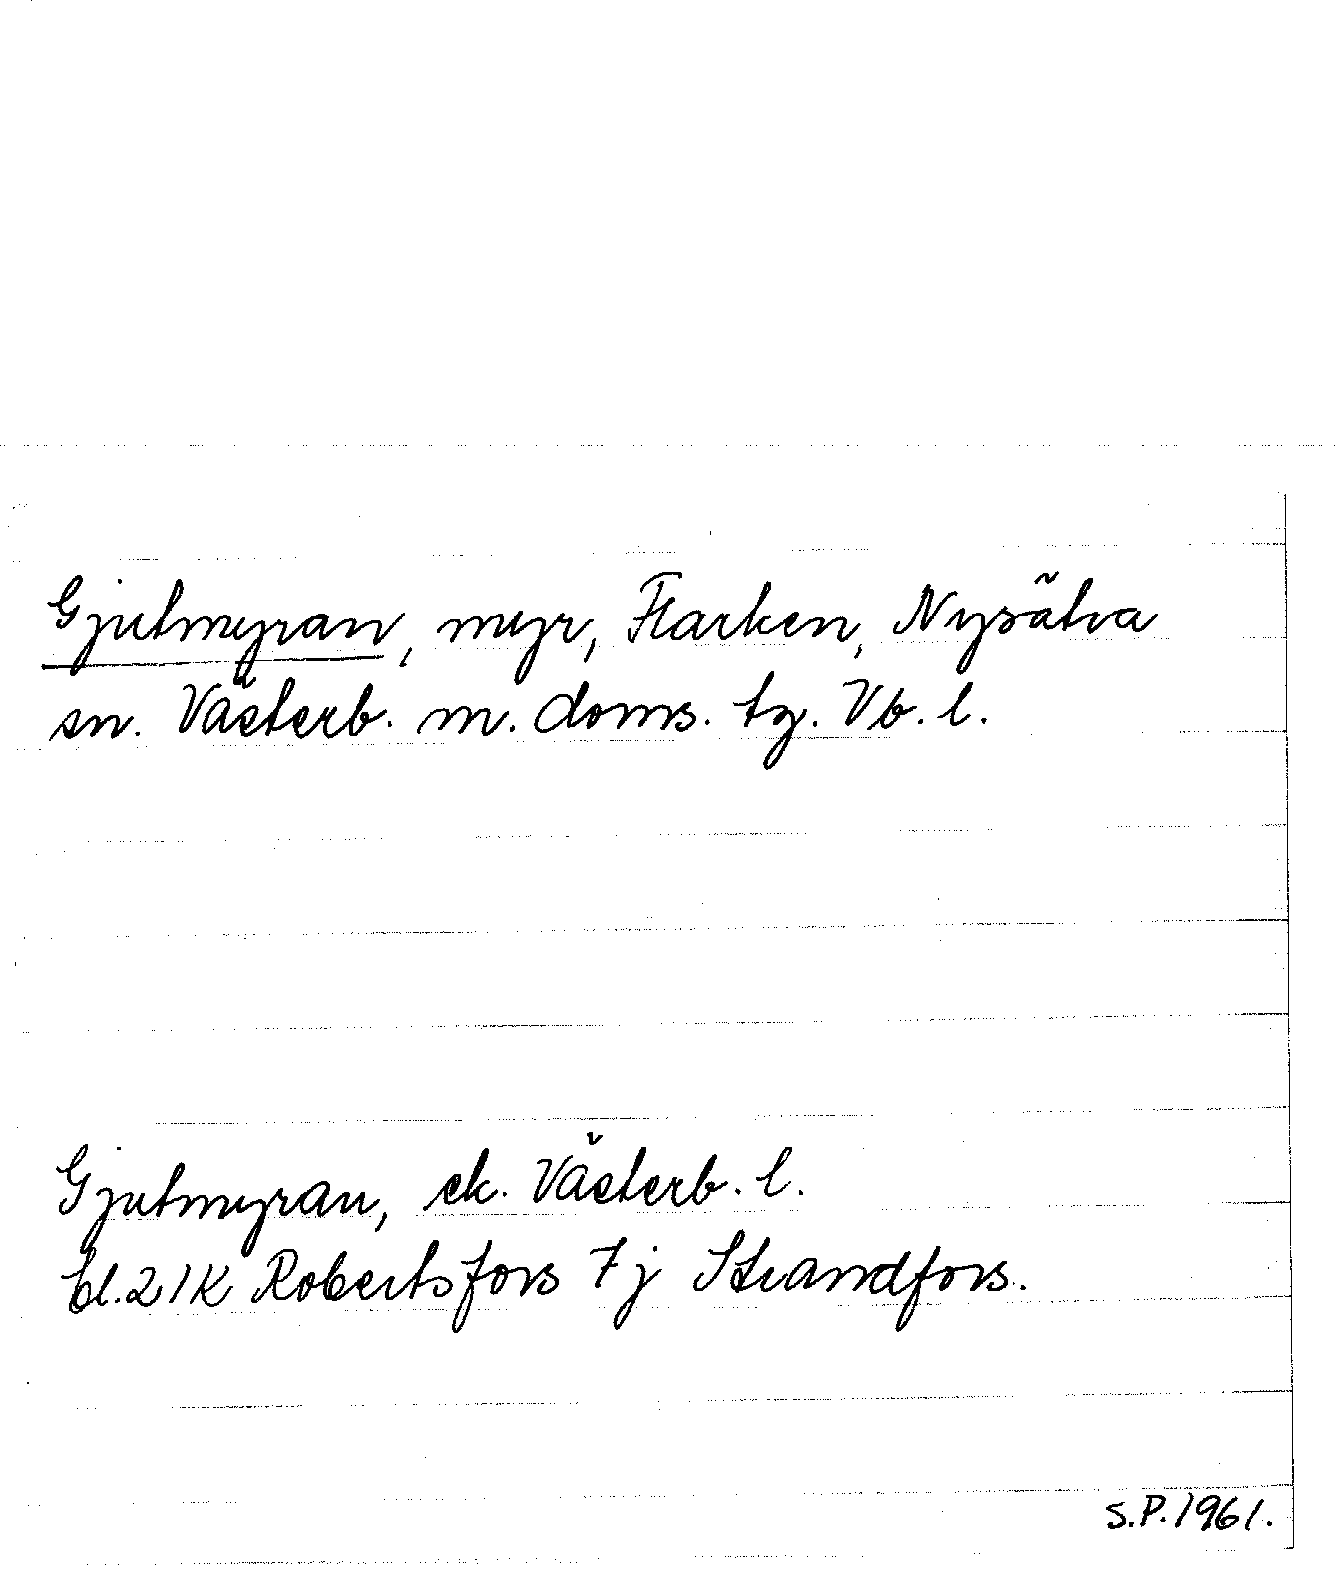 Gjutmyran, myr, Flarken, Nysätra
sn. Västerb. m. doms. tg. Vb. l.
Gjutmyran, ek. Västerb. l.
bl. 21K Robertsfors 7 j Strandfors.
S.P. 1961.